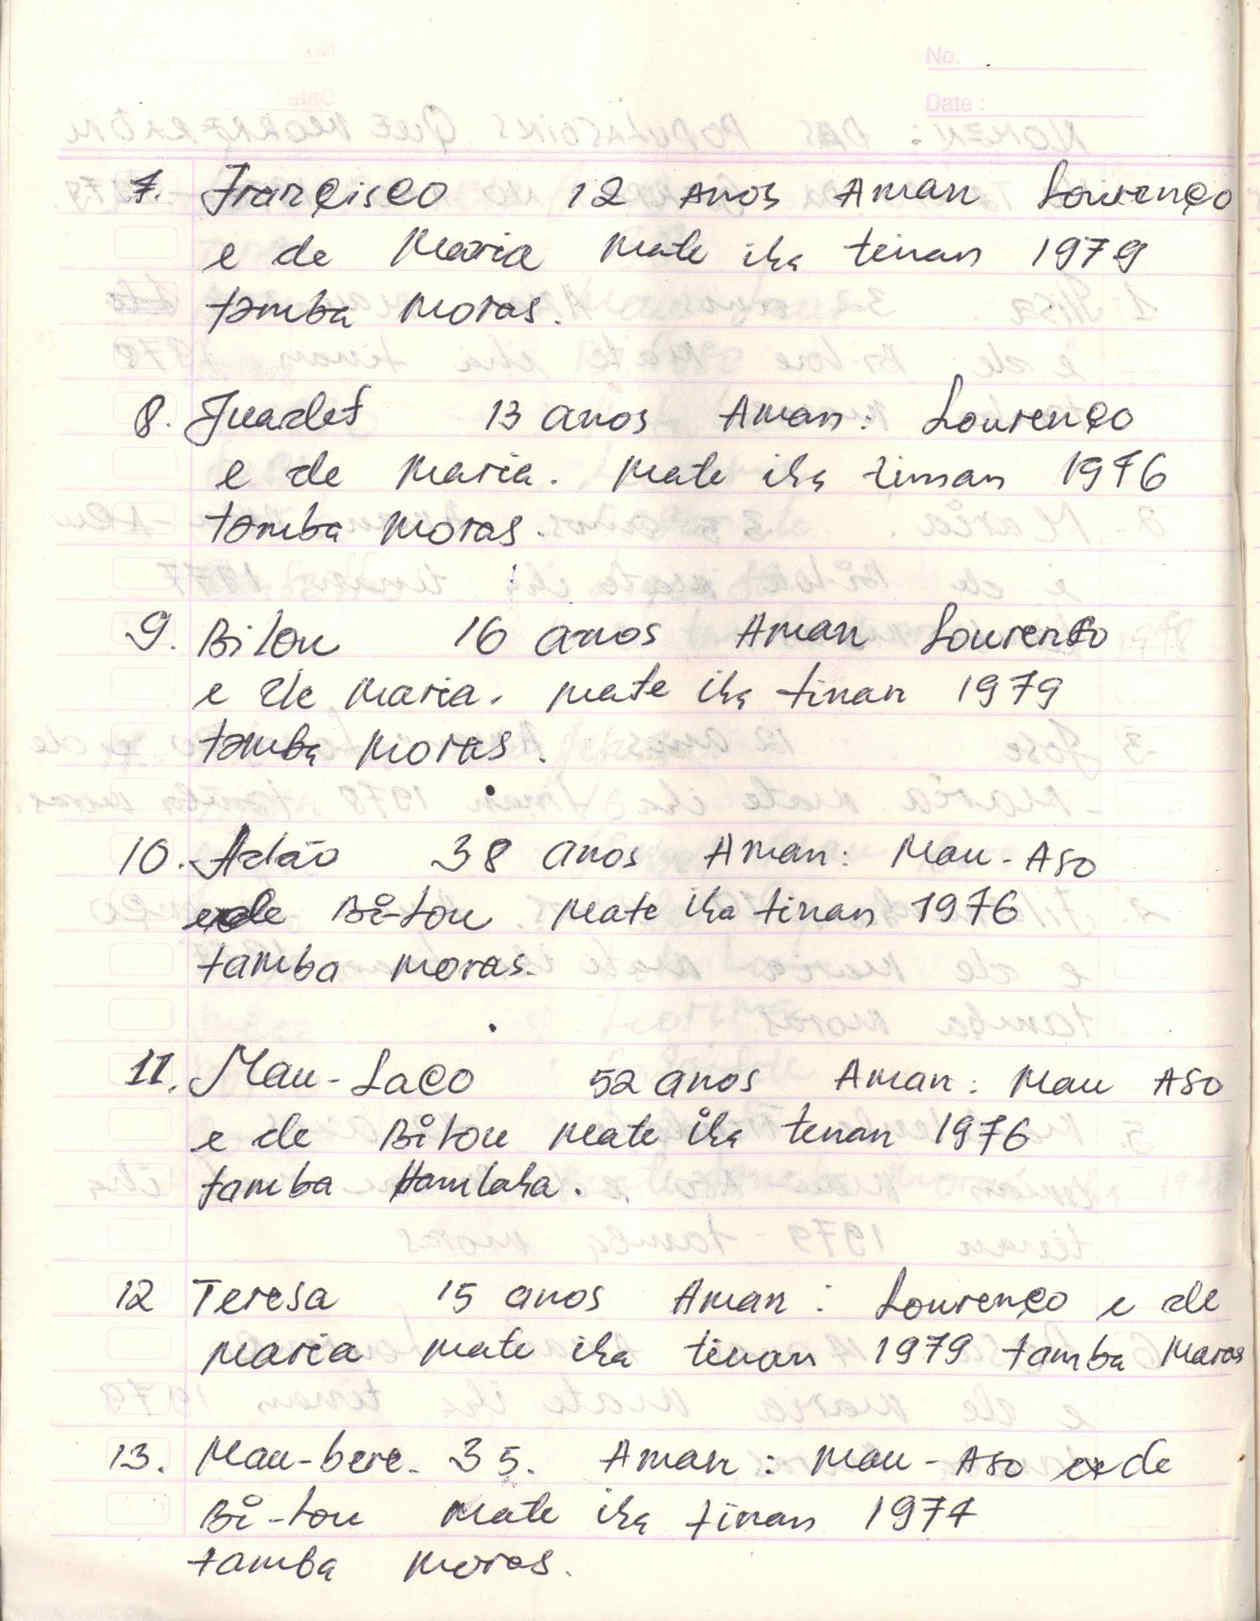 No.
Date :
7. Françisco 12 anos Aman Lourenço
e de Maria Mate iha tinan 1979
tamba moras.
8. Juadet 13 anos Aman: Lourenço
e de Maria. Mate iha tinan 1976
tamba moras.
9. Bilou 16 anos Aman Lourenso
e de Maria. mate iha tinan 1979
tamba moras.
10. Adão 38 anos Aman: Mau-Aso
e de Bi-Lou Mate iha tinan 1976
tamba moras.
11. Mau-Laco 52 anos Aman: Mau Aso
e de Bilou Mate iha tenan 1976
tamba Hamlaha.
12 Teresa 15 anos Aman: Lourenço e de
Maria mate iha tinan 1979 tamba Maras
13. Mau-bere. 35. Aman: Mau-Aso e de
Bi-Lou Mate iha tinan 1977
tamba moras.